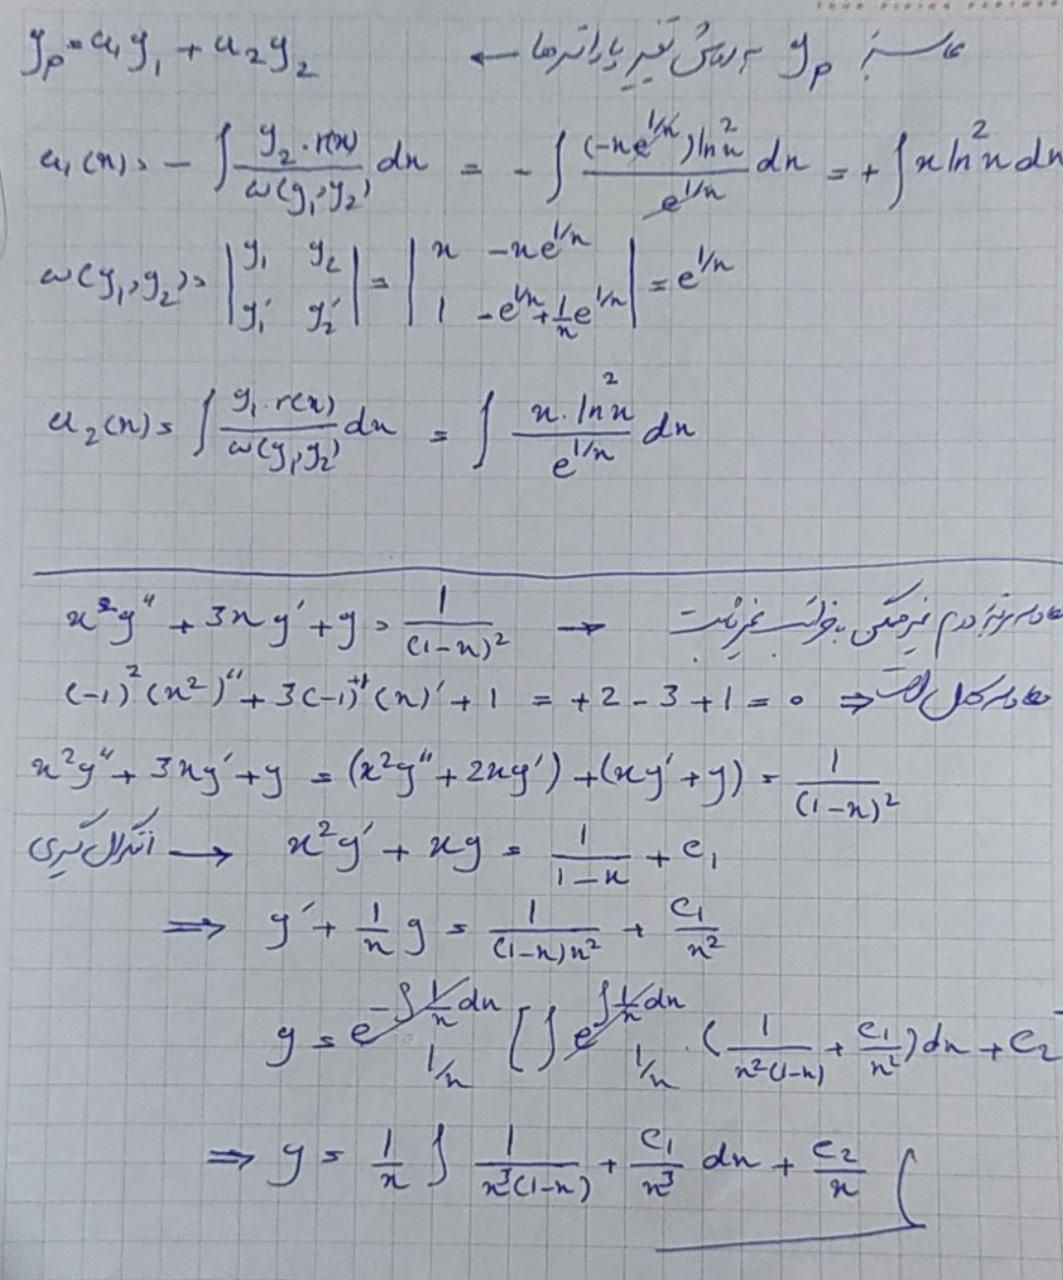 y_p = u_1 y_1 + u_2 y_2 ← محاسبه y_p به روش تغییر پارامترها
u_1(x) = - ∫ y_2 . r(x) / w(y_1, y_2) dx = - ∫ (-xe^{1/x}) ln^2 x / e^{1/x} dx = + ∫ x ln^2 x dx
w(y_1, y_2) = | y_1 y_2 ; y_1' y_2' | = | x -xe^{1/x} ; 1 -e^{1/x} + 1/x e^{1/x} | = e^{1/x}
u_2(x) = ∫ y_1 . r(x) / w(y_1, y_2) dx = ∫ x . ln^2 x / e^{1/x} dx
x^2 y'' + 3x y' + y = 1/(1-x)^2 → معادله مرتبه دوم غیرهمگن با ضرایب غیرثابت
(-1)^2 (x^2)'' + 3(-1)^{+1} (x)' + 1 = +2 - 3 + 1 = 0 ⇒ معادله کامل است
x^2 y'' + 3xy' + y = (x^2 y'' + 2xy') + (xy' + y) = 1/(1-x)^2
انتگرال گیری → x^2 y' + xy = 1/(1-x) + c_1
⇒ y' + 1/x y = 1/((1-x)x^2) + c_1/x^2
y = e^{-∫ 1/x dx} [ ∫ e^{∫ 1/x dx} . ( 1/(x^2(1-x)) + c_1/x^2 ) dx + c_2
1/x 1/x
⇒ y = 1/x ∫ 1/(x^3(1-x)) + c_1/x^3 dx + c_2/x